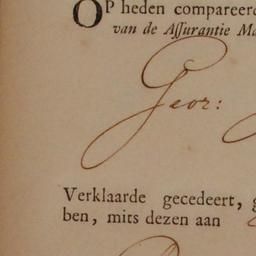 OP heden compareerd
van de Aſſurantie Ma
Geor:
Verklaarde gecedeert, g
ben, mits dezen aan